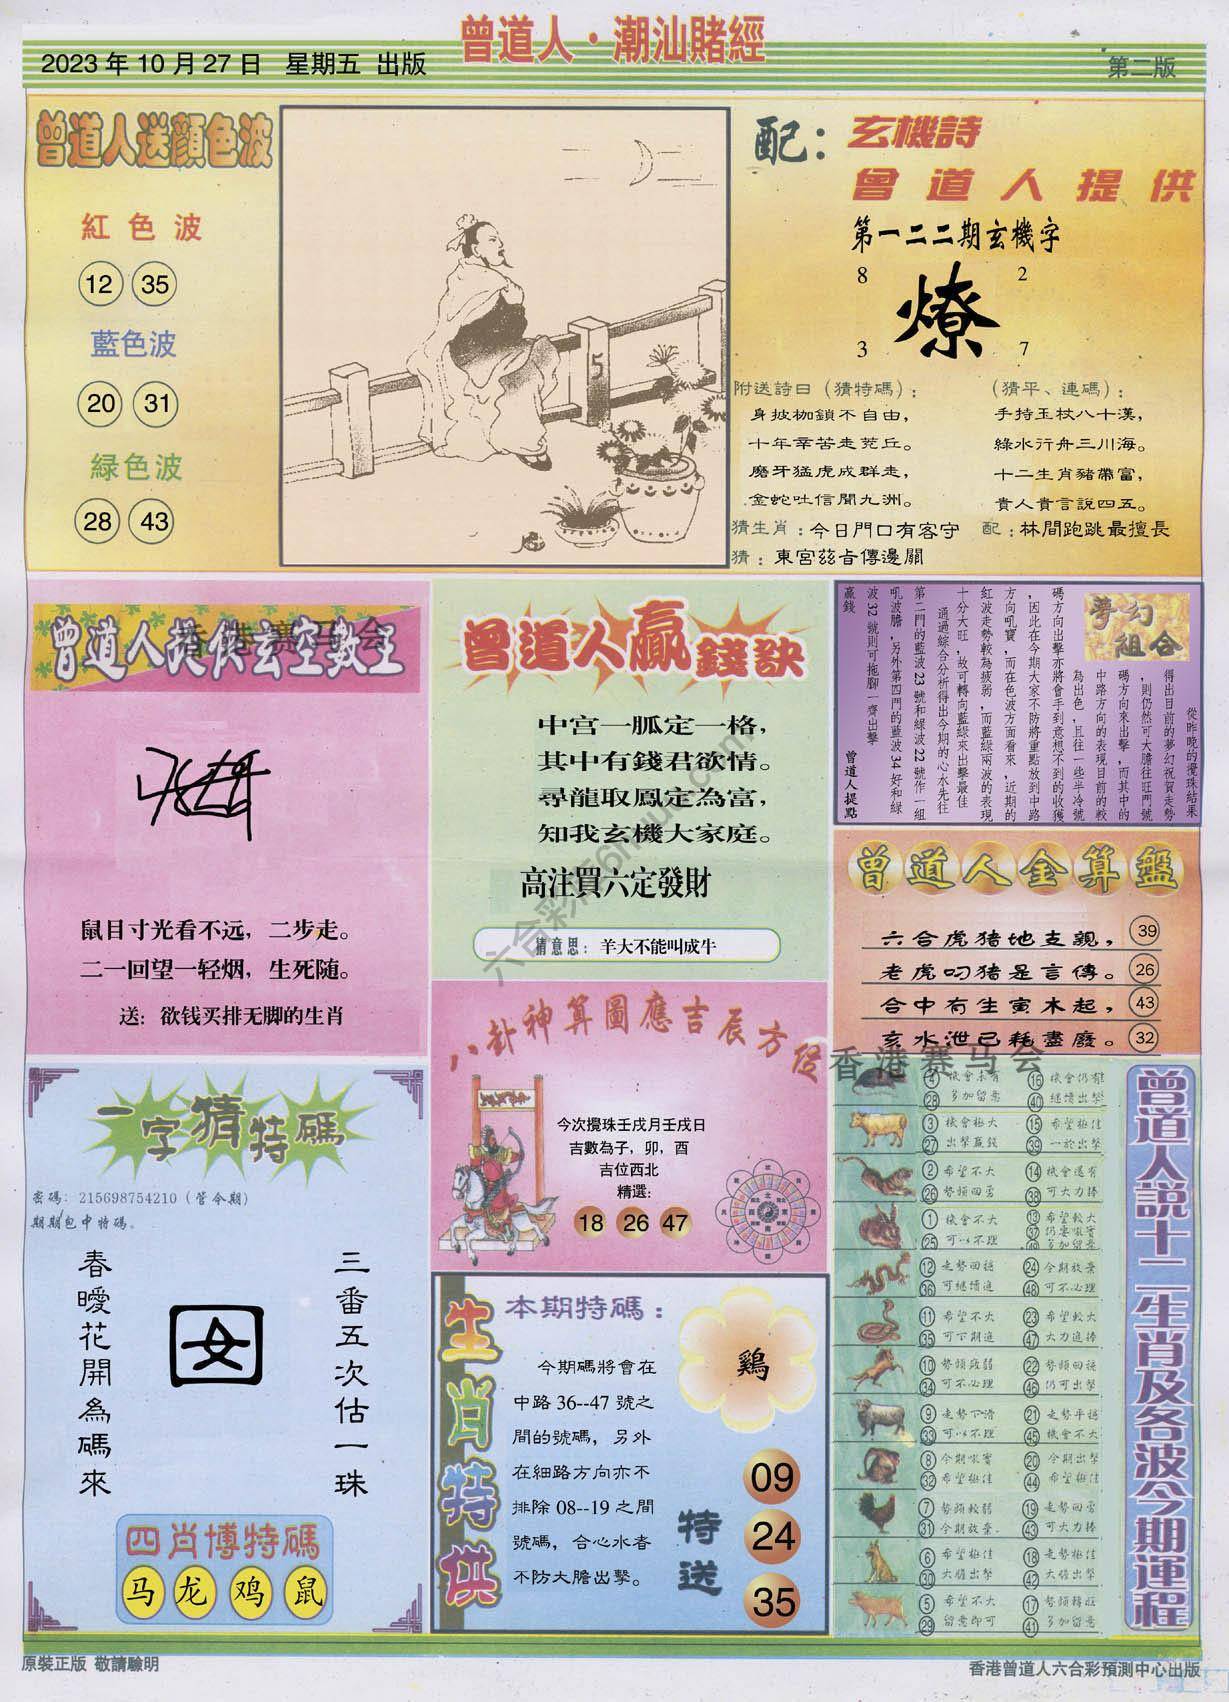 曾道人·潮汕賭經
2023年10月27日 星期五 出版
第二版
曾道人送顏色波
紅色波
12 35
藍色波
20 31
緑色波
28 43
5
配：玄機詩
曾道人提供
第一二二期玄機字
8 2
燎
3 7
附送詩曰（猜特碼）：
身披枷鎖不自由，
十年辛苦走荒丘。
磨牙猛虎成群走，
金蛇吐信聞九洲。
（猜平、連碼）：
手持玉杖八十漢，
綠水行舟三川海。
十二生肖豬帶富，
貴人貴言說四五。
猜生肖：今日門口有客守
配：林間跑跳最擅長
猜：東宮兹旨傳邊關
曾道人提供玄空數王
香港赛马会
鼠目寸光看不远，二步走。
二一回望一轻烟，生死随。
送：欲钱买排无脚的生肖
曾道人贏錢訣
中宫一胍定一格，
其中有錢君欲情。
尋龍取鳳定為富，
知我玄機大家庭。
高注買六定發財
猜意思：羊大不能叫成牛
夢幻組合
從昨晚的攪珠結果
得出目前的夢幻祝賀走勢
，則仍然可大膽往旺門號
碼方向來出擊，而其中的
中路方向的表現目前的較
為出色，且往一些半冷號
碼方向出擊亦將會手到意想不到的收獲
，因此在今期大家不防將重點放到中路
方向吼寶，而在色波方面看來，近期的
紅波走勢較為疲弱，而藍綠兩波的表現
十分大旺，故可轉向藍綠來出擊最佳
通過綜合分析得出今期的心水先往
第二門的藍波23號和綠波22號作一組
吼波膽，另外第四門的藍波34好和綠
波32號則可拖腳一齊出擊
贏錢
曾道人提點
曾道人金算盤
六合虎猪地支親， 39
老虎叼猪是言傳。 26
合中有生寅木起， 43
亥水泄己耗盡廢。 32
香港赛马会
八卦神算圖應吉辰方位
今次攪珠壬戌月壬戌日
吉數為子，卯，酉
吉位西北
精選：
18 26 47
一字猜特碼
密碼：215698754210（管令期）
期期包中特碼。
三番五次估一珠
春曖花開為碼來
四肖博特碼
马 龙 鸡 鼠
生肖特供
本期特碼：
鷄
今期碼將會在
中路36--47號之
間的號碼，另外
在細路方向亦不
排除08--19之間
號碼，合心水者
不防大膽出擊。
特送
09
24
35
曾道人説十二生肖及各波今期運程
4 機會未有 16 機會仍有
28 多加留意 40 继續出擊
3 機會極大 15 希望極佳
27 出擊贏錢 39 一於出擊
2 希望不大 14 機會還有
26 勢頭回勇 38 可大力捧
1 機會不大 13 希望較大
25 可以不理 37 仍要吼實
49 多加留意
12 走勢回穩 24 今期放棄
36 可继續追 48 可不必理
11 希望不大 23 希望較大
35 可下期追 47 大力追捧
10 勢頭疲弱 22 勢頭回穩
34 可不必理 46 仍可出擊
9 走勢下滑 21 走勢平穩
33 可以不理 45 機會不大
8 今期吼實 20 今期出擊
32 希望極佳 44 希望極佳
7 勢頭較弱 19 走勢回勇
31 今期放棄. 43 可大力捧
6 希望極佳 18 走勢極佳
30 大膽出擊 42 大膽出擊
5 希望不大 17 勢頭轉旺
29 留意即可 41 多加留意
原裝正版 敬請驗明
香港曾道人六合彩預測中心出版